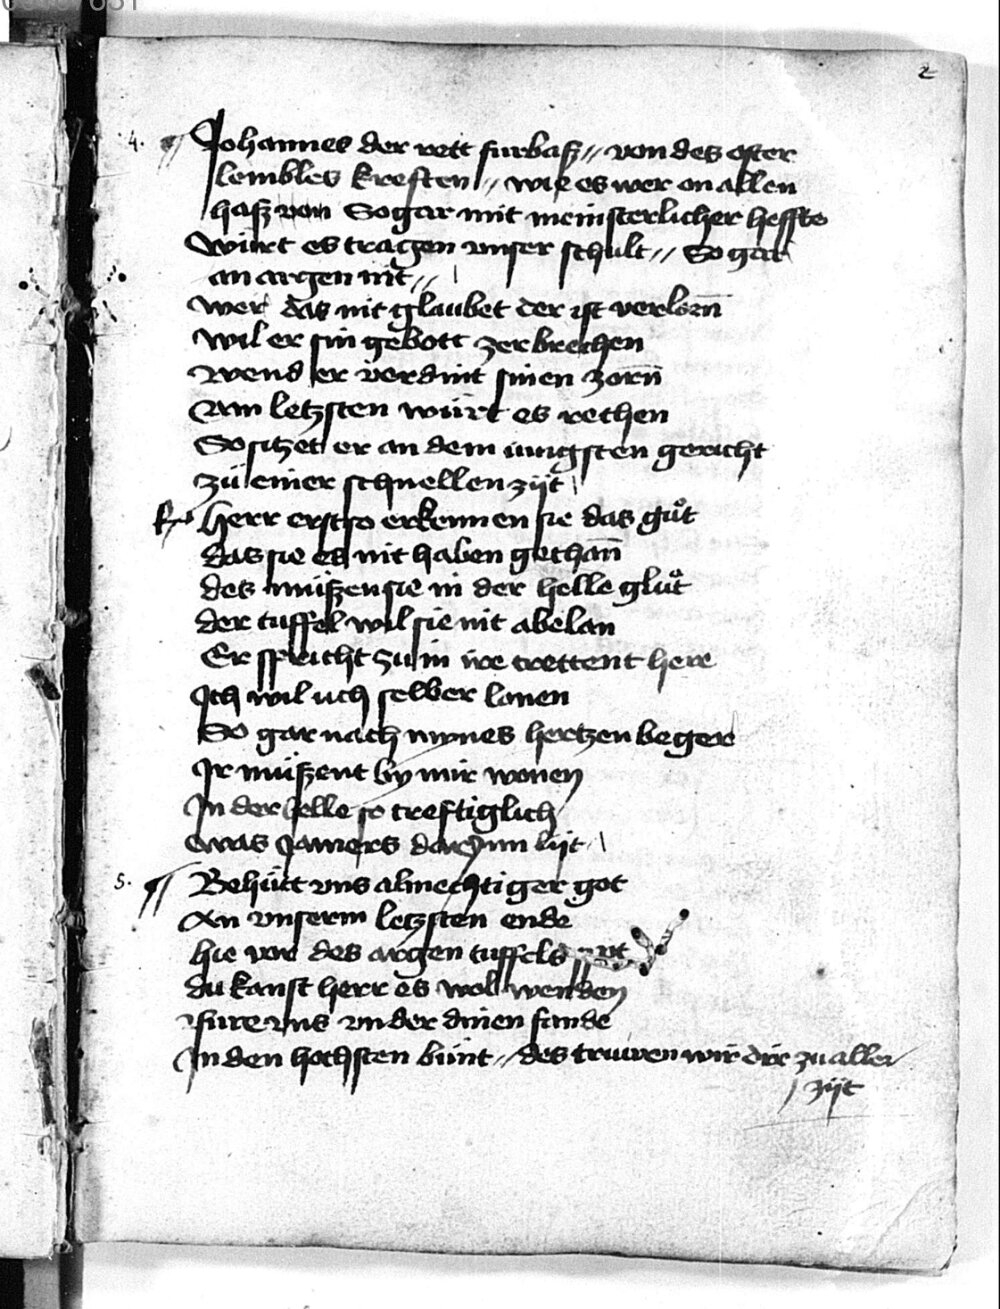 2
4. Johannes der rett furbaß // von des oster
lembles kreften // wie es wer on allen
haß von So gar mit meinsterlicher heffte
Würt es tragen vnser schult // So gar
an argen nit //
wer das nit glaubet der ist verlorn̄
wil er sin gebott zerbrechen
wend er verdint sinen zorn̄
Am letzsten würt es rechen
So sitzet er an dem iungsten gericht
zü einer schnellen zijt
Herr erst so erkennen sie das gůt
das sie es nit haben gethan̄
des müßen sie in der helle glůt
der tuffel wil sie nit abelan
Er spricht zu in ire trettent here
Ich wil uch selber lonen
So gar nach mynes hertzen beger
Ir müßent by mir wonen
In der helle so creftiglich
was Jamers dar Inn lijt
5. Behütt vns almechtiger got
An vnserm letzsten ende
hie vor des argen tuffels
du kanst herr es wol wenden
fure vns vnder dinen
In den hochsten bünt // des truwen wir dir zu aller
zijt